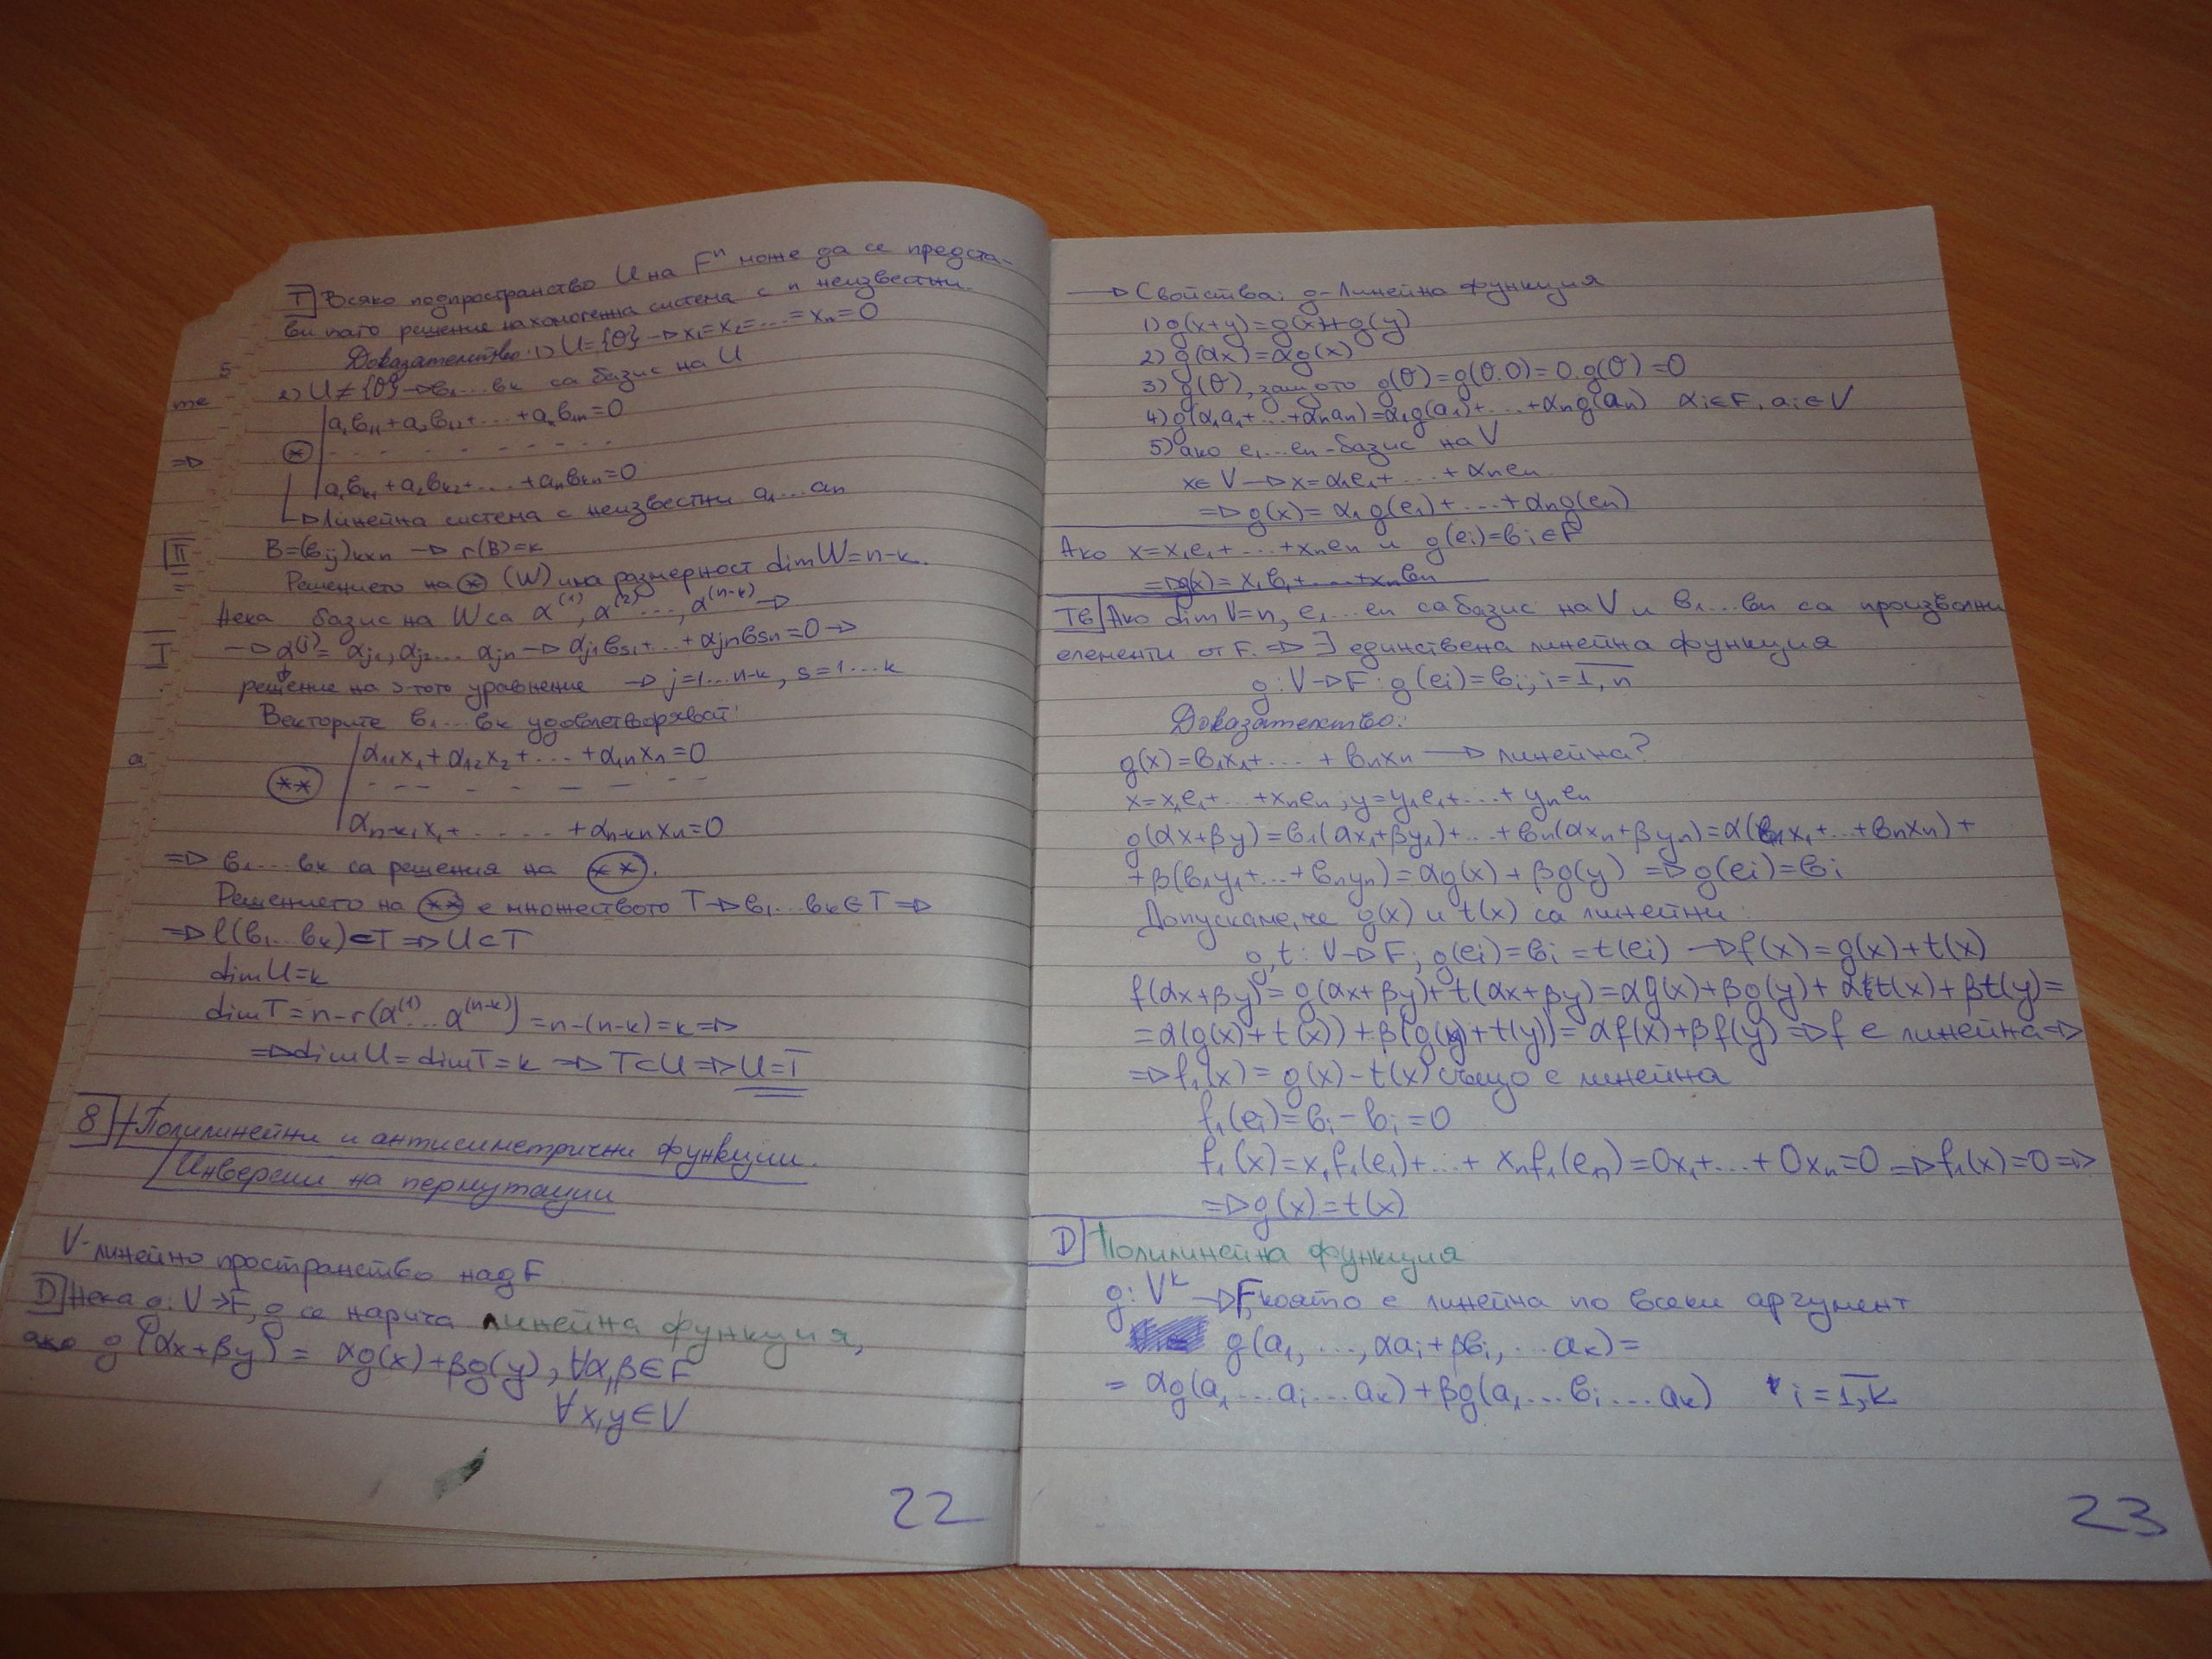 Т Всяко подпространство U на Fⁿ може да се предста-
ви като решение на хомогенна система с n неизвестни.
Доказателство: 1) U={θ} → x₁=x₂=...=xₙ=0
2) U≠{θ} → b₁...bₖ са базис на U
a₁b₁₁+a₂b₁₂+...+aₙb₁ₙ=0
(*) - - - - - - - -
a₁bₖ₁+a₂bₖ₂+...+aₙbₖₙ=0
↳ Линейна система с неизвестни a₁...aₙ
B=(bᵢⱼ)ₖₓₙ → r(B)=k
Решението на (*) (W) има размерност dim W=n-k.
Нека базис на W са α⁽¹⁾, α⁽²⁾..., α⁽ⁿ⁻ᵏ⁾ →
→ α⁽ʲ⁾= αⱼ₁, αⱼ₂... αⱼₙ → αⱼ₁bₛ₁+...+αⱼₙbₛₙ=0 →
решение на s-тото уравнение → j=1...n-k, s=1...k
Векторите b₁...bₖ удовлетворяват:
α₁₁x₁+α₁₂x₂+...+α₁ₙxₙ=0
(**) - - - - - - - -
αₙ₋ₖ₁x₁+.....+αₙ₋ₖₙxₙ=0
=> b₁...bₖ са решения на (**).
Решението на (**) е множеството T → b₁...bₖ∈T =>
=> l(b₁...bₖ)⊂T => U⊂T
dim U=k
dim T=n-r(α⁽¹⁾...α⁽ⁿ⁻ᵏ⁾)=n-(n-k)=k =>
=> dim U=dim T=k => T⊂U => U=T
8 Полилинейни и антисиметрични функции.
Инверсии на пермутации
V-линейно пространство над F
D Нека g: V→F, g се нарича линейна функция,
ако g(αx+βy) = αg(x)+βg(y), ∀α,β∈F
∀x,y∈V
22
5
те
=>
II
I
а
→ Свойства: g-линейна функция
1) g(x+y)=g(x)+g(y)
2) g(αx)=αg(x)
3) g(θ), защото g(θ)=g(θ.0)=0.g(θ)=0
4) g(α₁a₁+...+αₙaₙ)=α₁g(a₁)+...+αₙg(aₙ) αᵢ∈F, aᵢ∈V
5) ако e₁...eₙ-базис на V
x∈V → x=α₁e₁+...+αₙeₙ
=> g(x)= α₁g(e₁)+...+αₙg(eₙ)
Ако x=x₁e₁+...+xₙeₙ и g(eᵢ)=bᵢ∈F
=> g(x)= x₁b₁+...+xₙbₙ
Тв Ако dim V=n, e₁...eₙ са базис на V и b₁...bₙ са произволни
елементи от F. => ∃ единствена линейна функция
g: V→F: g(eᵢ)=bᵢ, i=1,n
Доказателство:
g(x)=b₁x₁+...+bₙxₙ → линейна?
x=x₁e₁+...+xₙeₙ; y=y₁e₁+...+yₙeₙ
g(αx+βy)=b₁(αx₁+βy₁)+...+bₙ(αxₙ+βyₙ)=α(b₁x₁+...+bₙxₙ)+
+β(b₁y₁+...+bₙyₙ)=αg(x)+βg(y) => g(eᵢ)=bᵢ
Допускаме, че g(x) и t(x) са линейни
g,t: V→F; g(eᵢ)=bᵢ=t(eᵢ) → f(x)=g(x)+t(x)
f(αx+βy)=g(αx+βy)+t(αx+βy)=αg(x)+βg(y)+αt(x)+βt(y)=
=α(g(x)+t(x))+β(g(y)+t(y))=αf(x)+βf(y) => f е линейна =>
=> f₁(x)=g(x)-t(x) също е линейна
f₁(eᵢ)=bᵢ-bᵢ=0
f₁(x)=x₁f₁(e₁)+...+xₙf₁(eₙ)=0x₁+...+0xₙ=0 => f₁(x)=0 =>
=> g(x)=t(x)
D Полилинейна функция
g: Vᵏ → F, която е линейна по всеки аргумент
g(a₁,...,αaᵢ+βbᵢ,...aₖ)=
= αg(a₁...aᵢ...aₖ)+βg(a₁...bᵢ...aₖ) i=1,k
23